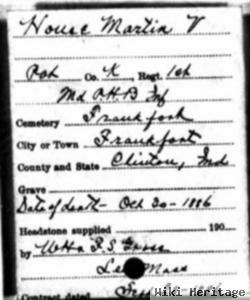 House Martin V
Co. K, Regt. 1st
Md P.H.B Inf
Cemetery Frankfort
City or Town Frankfort
County and State Clinton, Ind
Grave
Date of death - Oct 30 - 1886
Headstone supplied 190
by
Lee Mass
Contract dated Sep
Wiki Heritage